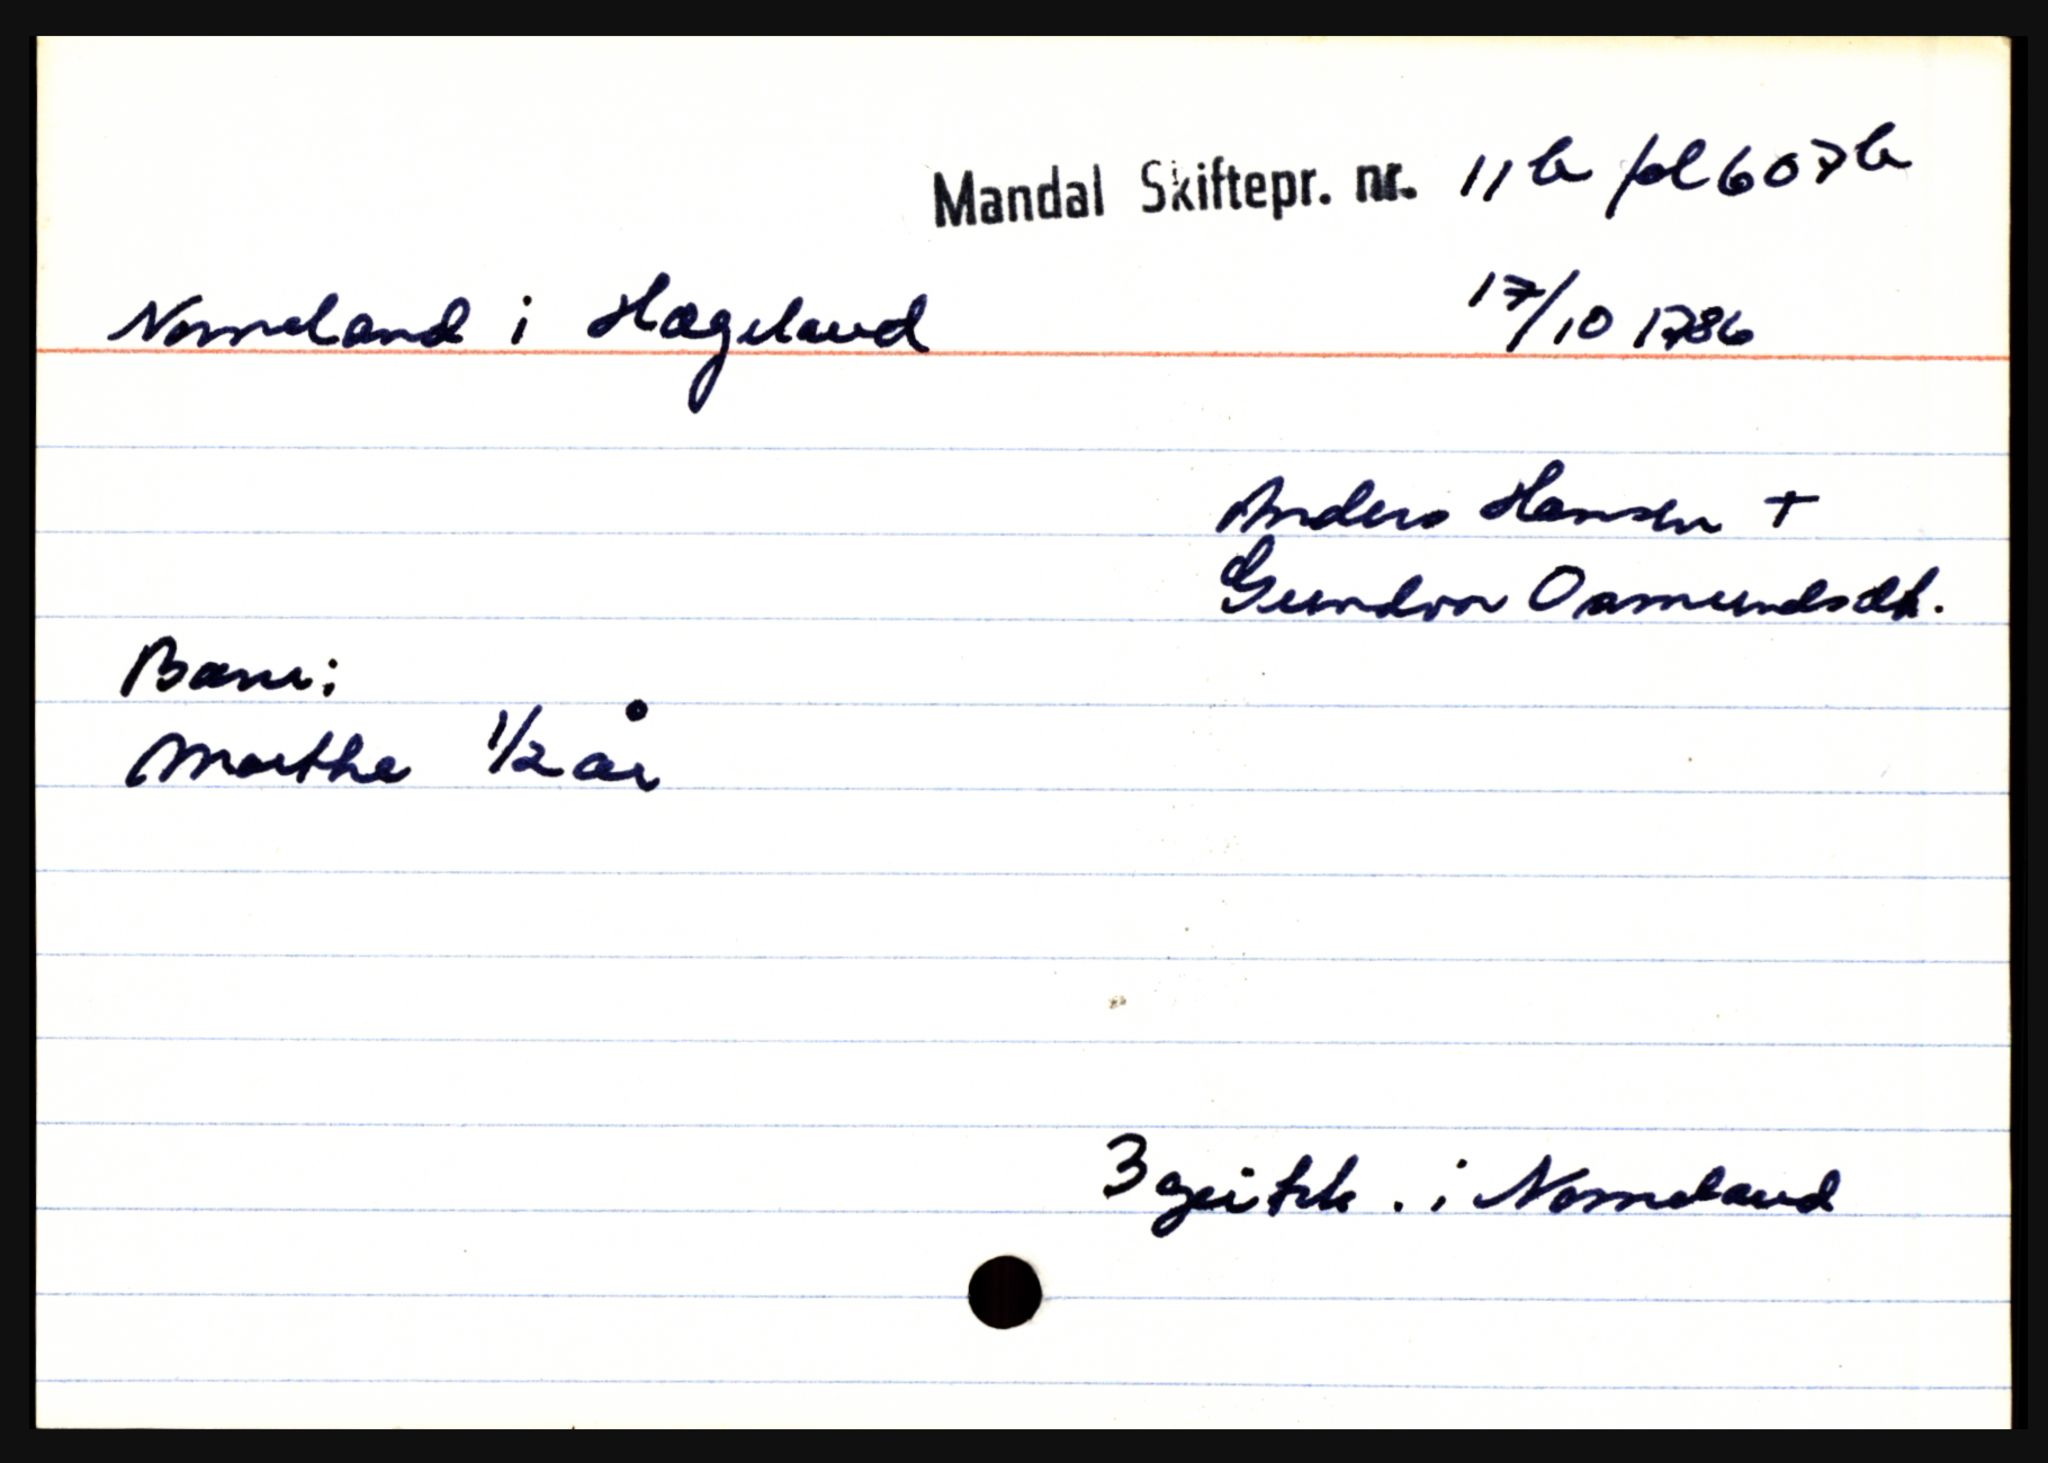 Mandal Skiftepr. nr. 11b fol 607b
Nomeland i Hægeland 17/10 1786
Anders Hansen +
Gundvor Osmundsdt.
Barn:
Marthe 1/2 år
3 geitsk. i Nomeland